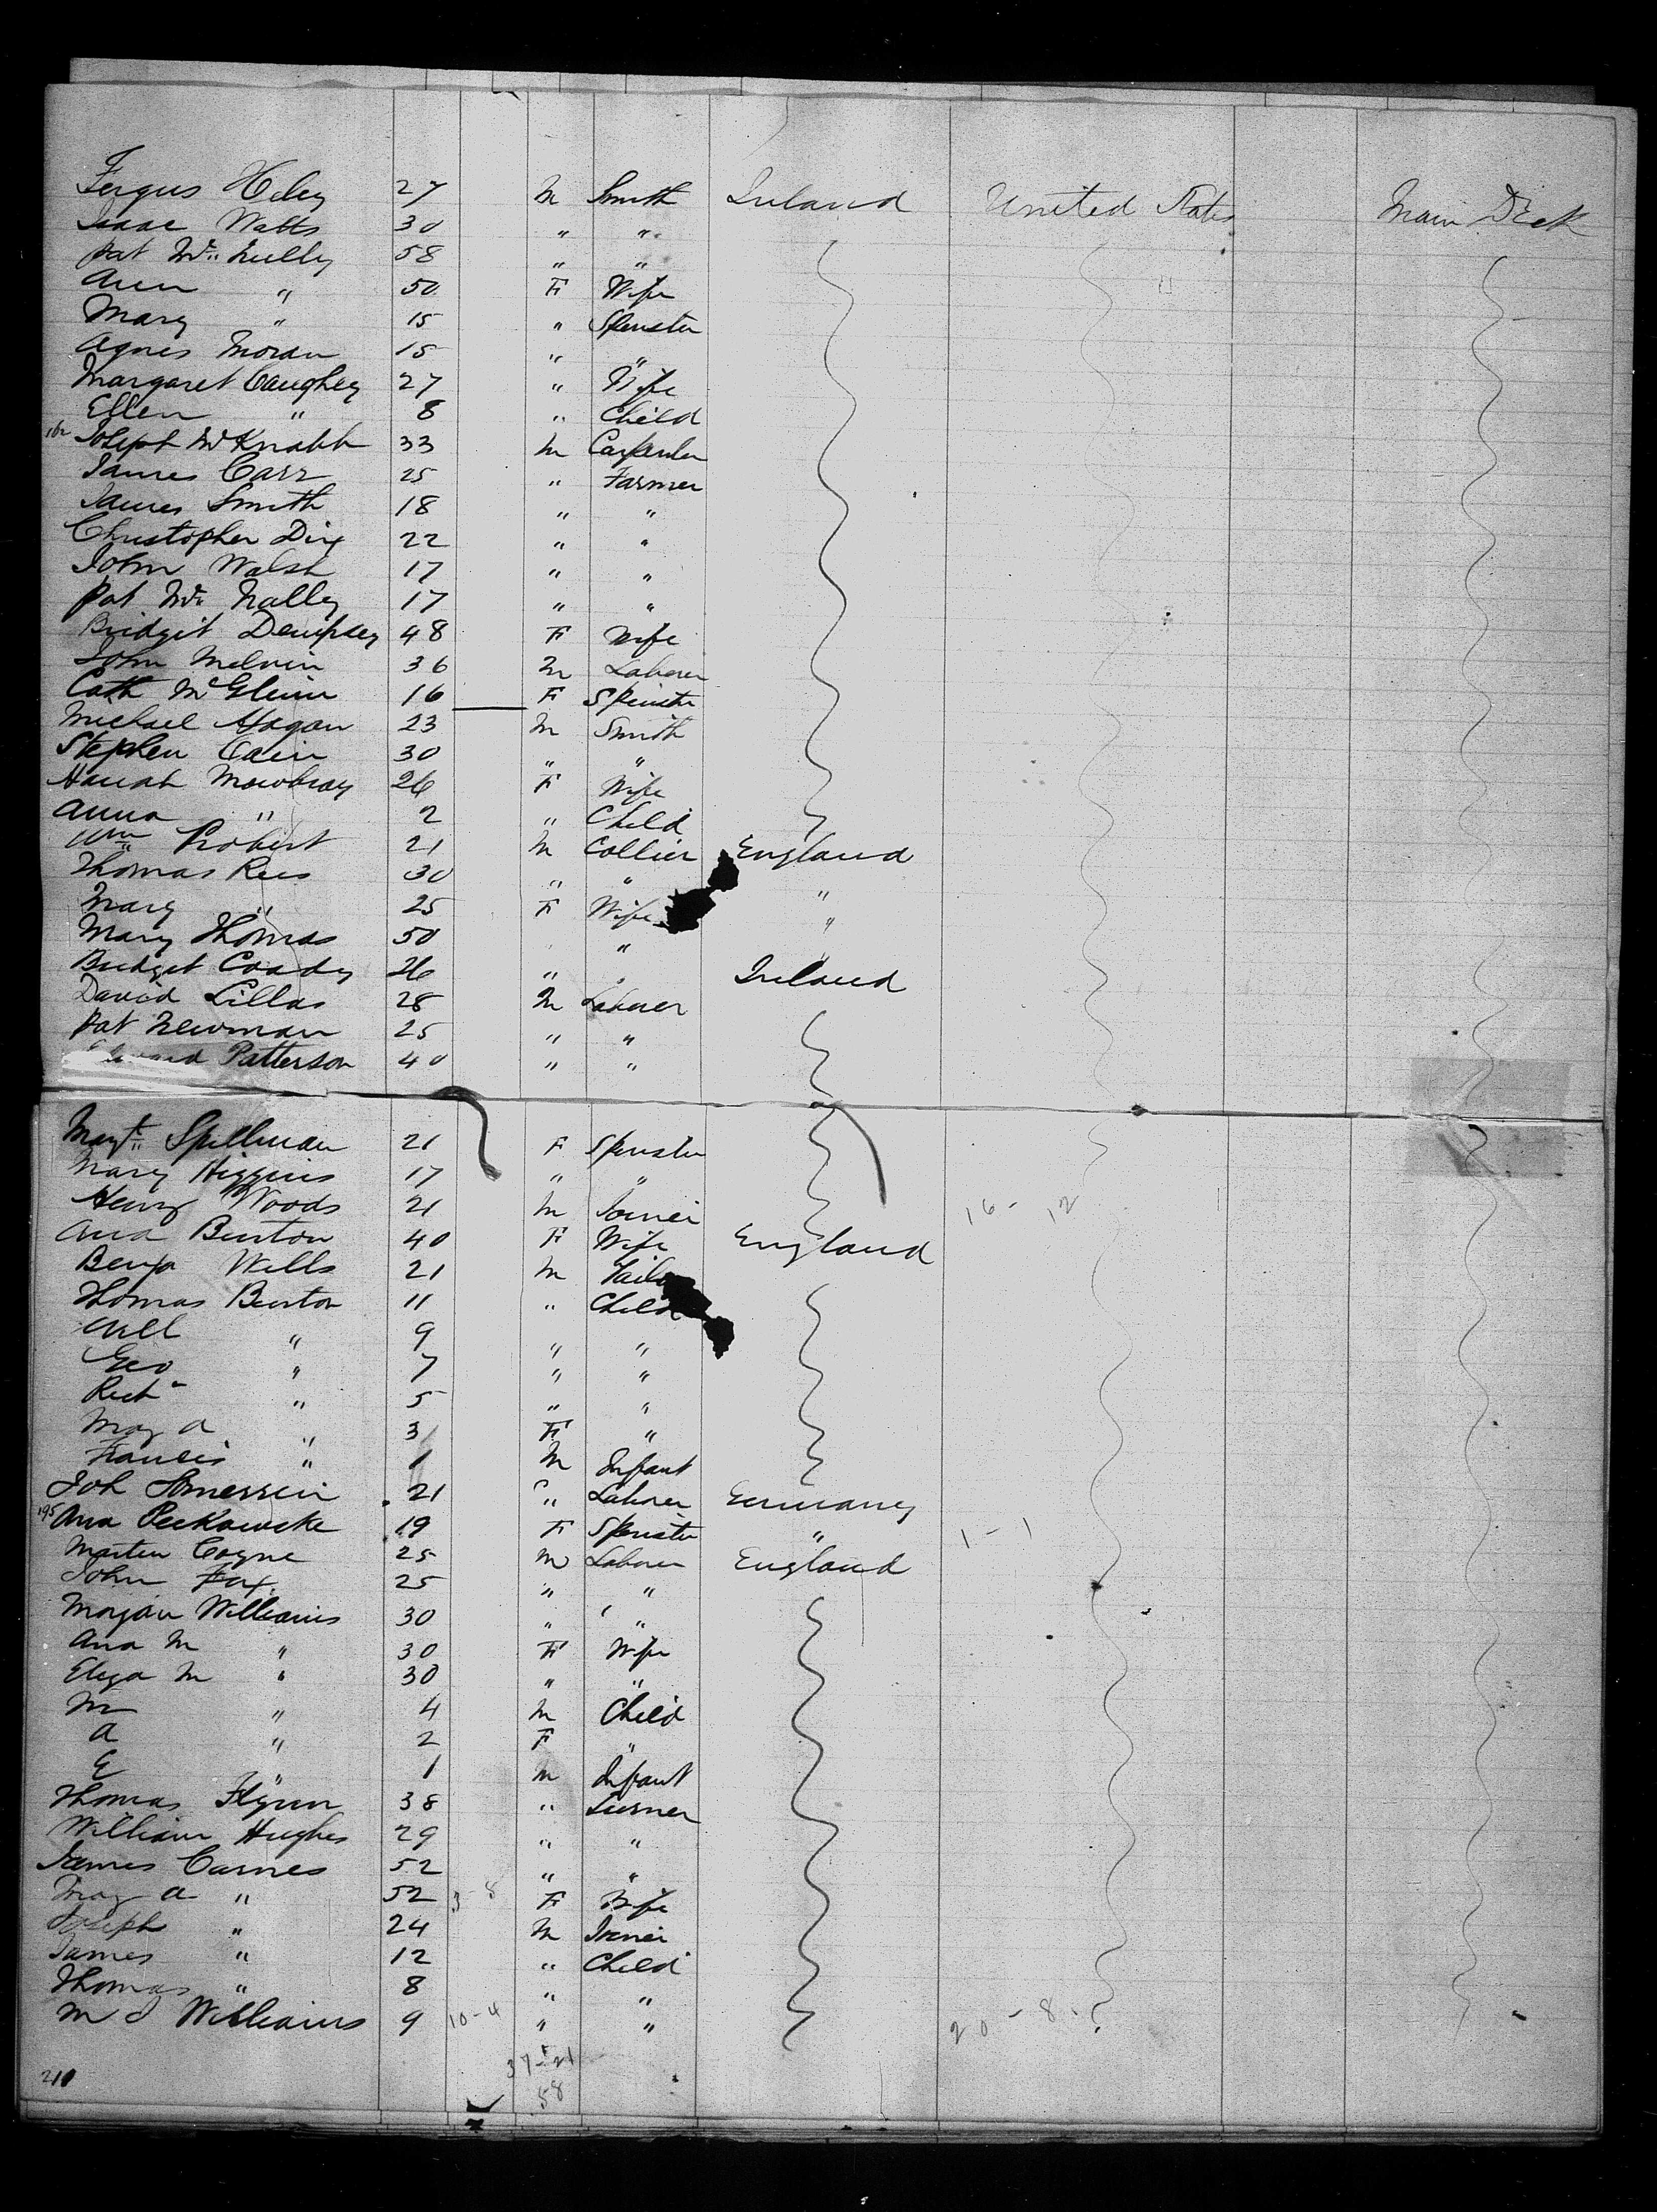 Fergus Heley 27 M Smith Ireland United States Main Deck
Isaac Watts 30 " "
Pat Mc Nully 58 " "
Ann " 50 F Wife
Mary " 15 " Spinster
Agnes Moran 15 " "
Margaret Caughey 27 " Wife
Ellen " 8 " Child
Joseph McKnabb 33 M Carpenter
James Carr 25 " Farmer
James Smith 18 " "
Christopher Dix 22 " "
John Walsh 17 " "
Pat Mc Nally 17 " "
Bridgit Dempsey 48 F Wife
John Melvin 36 M Laborer
Cath McGlinn 16 F Spinster
Michael Hogan 23 M Smith
Stephen Cain 30 " "
Hanah Mowbray 26 F Wife
Anna " 2 " Child
Wm Probert 21 M Collier England
Thomas Rees 30 " " "
Mary " 25 F Wife "
Mary Thomas 50 " "
Bridget Coady 26 " " Ireland
David Lillas 28 M Laborer
Pat Newman 25 " "
Patterson 40 " "
Margt Spillman 21 F Spinster
Mary Higgins 17 " "
Henry Woods 21 M Joiner 16 - 12
Ana Burton 40 F Wife England
Benja Wells 21 M Tailor
Thomas Burton 11 " Child
Will " 9 " "
Geo " 7 " "
Rich " 5 " "
Mary A " 3 F "
Francis " 1 M Infant
Joh 21 " Laborer Germany
195 Ana 19 F Spinster " 1 - 1
Martin Coyne 25 M Laborer England
John Fox 25 " "
Morgan Williams 30 " "
Ana M " 30 F Wife
Eliza M " 30 " "
M " 4 M Child
A " 2 F "
E " 1 M Infant
Thomas Flynn 38 " Turner
William Hughes 29 " "
James Carnes 52 " "
Mary A " 52 3 - 8 F Wife
Joseph " 24 M Joiner
James " 12 " Child
Thomas " 8 " "
M J Williams 9 10 - 4 " " 20 - 8
37 - 21
210
58